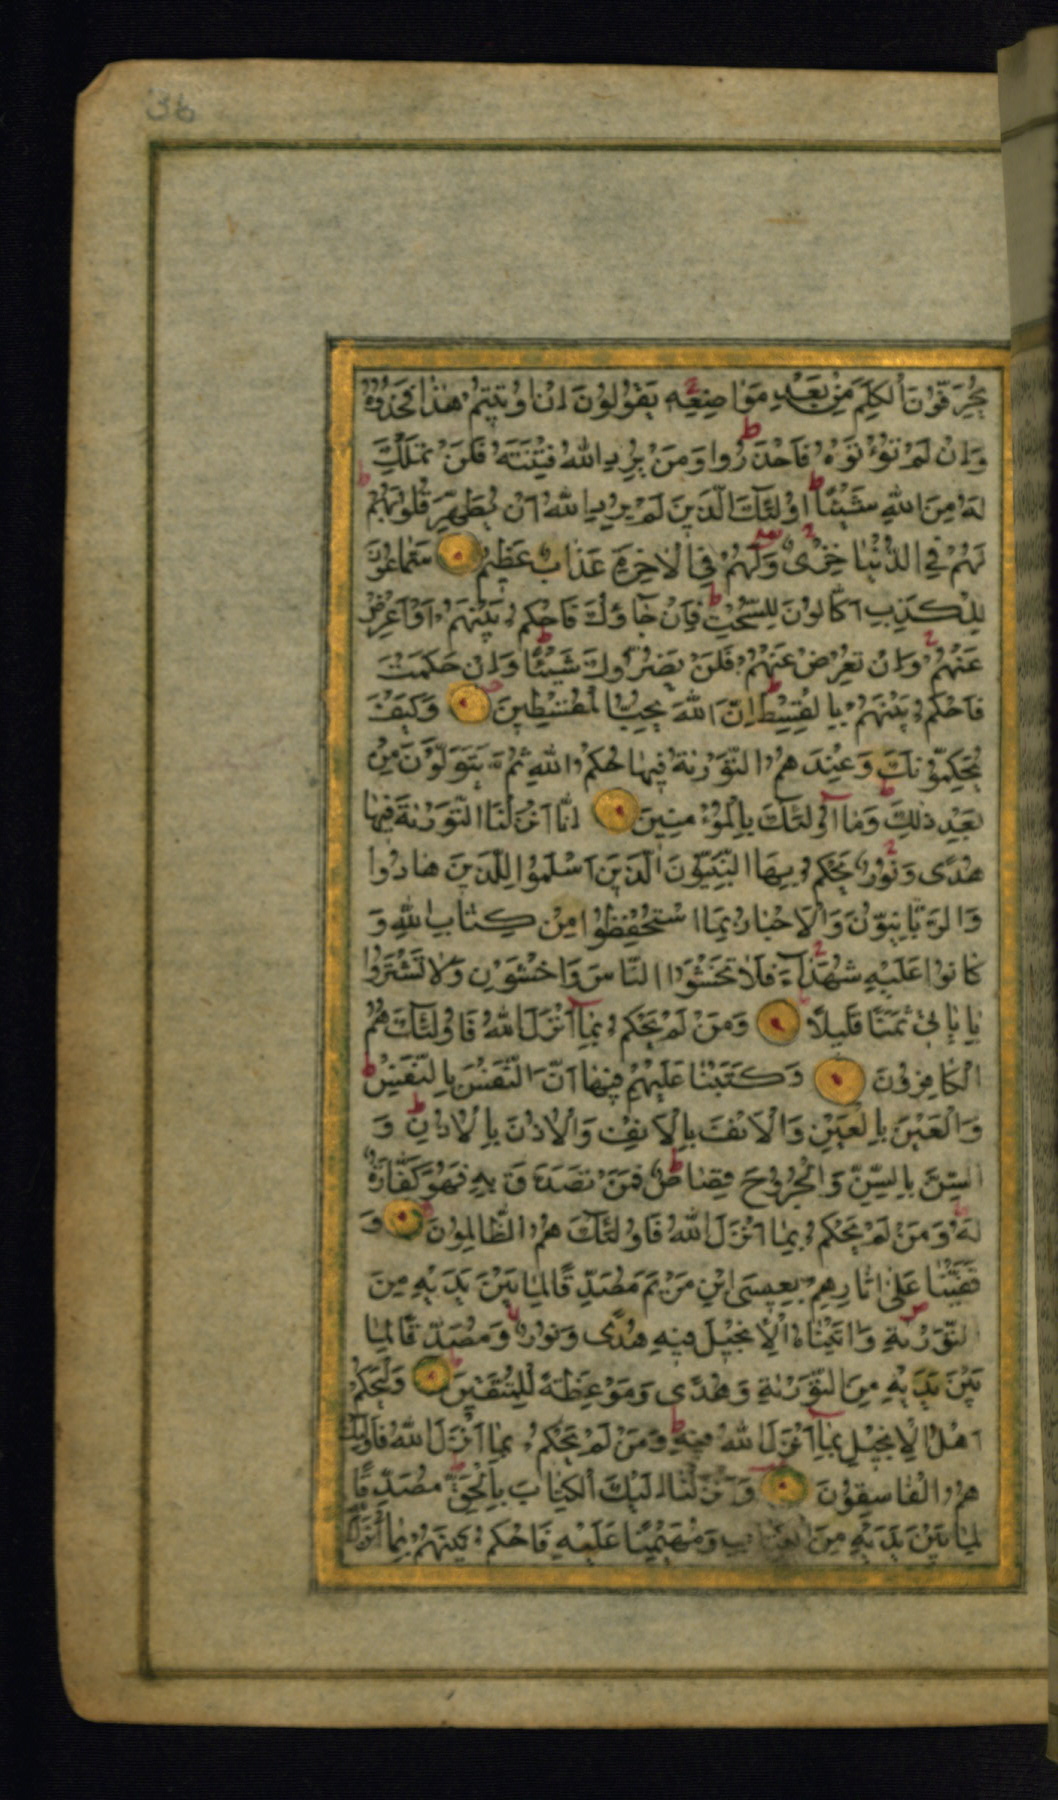 36
يُحَرِّفُونَ الْكَلِمَ مِنْ بَعْدِ مَوَاضِعِهِ يَقُولُونَ اِنْ اُوتِيتُمْ هٰذَا فَخُذُوهُ
وَاِنْ لَمْ تُؤْتَوْهُ فَاحْذَرُوا وَمَنْ يُرِدِ اللهُ فِتْنَتَهُ فَلَنْ تَمْلِكَ
لَهُ مِنَ اللهِ شَيْئًا اُولٰئِكَ الَّذِينَ لَمْ يُرِدِ اللهُ اَنْ يُطَهِّرَ قُلُوبَهُمْ
لَهُمْ فِي الدُّنْيَا خِزْىٌ وَلَهُمْ فِي الْاٰخِرَةِ عَذَابٌ عَظِيمٌ سَمَّاعُونَ
لِلْكَذِبِ اَكَّالُونَ لِلسُّحْتِ فَاِنْ جَاؤُكَ فَاحْكُمْ بَيْنَهُمْ اَوْ اَعْرِضْ
عَنْهُمْ وَاِنْ تُعْرِضْ عَنْهُمْ فَلَنْ يَضُرُّوكَ شَيْئًا وَاِنْ حَكَمْتَ
فَاحْكُمْ بَيْنَهُمْ بِالْقِسْطِ اِنَّ اللهَ يُحِبُّ الْمُقْسِطِينَ وَكَيْفَ
يُحَكِّمُونَكَ وَعِنْدَهُمُ التَّوْرٰيةُ فِيهَا حُكْمُ اللهِ ثُمَّ يَتَوَلَّوْنَ مِنْ
بَعْدِ ذٰلِكَ وَمَا اُولٰئِكَ بِالْمُؤْمِنِينَ اِنَّا اَنْزَلْنَا التَّوْرٰيةَ فِيهَا
هُدًى وَنُورٌ يَحْكُمُ بِهَا النَّبِيُّونَ الَّذِينَ اَسْلَمُوا لِلَّذِينَ هَادُوا
وَالرَّبَّانِيُّونَ وَالْاَحْبَارُ بِمَا اسْتُحْفِظُوا مِنْ كِتَابِ اللهِ وَ
كَانُوا عَلَيْهِ شُهَدَاءَ فَلَا تَخْشَوُا النَّاسَ وَاخْشَوْنِ وَلَا تَشْتَرُوا
بِاٰيَاتِي ثَمَنًا قَلِيلًا وَمَنْ لَمْ يَحْكُمْ بِمَا اَنْزَلَ اللهُ فَاُولٰئِكَ هُمُ
الْكَافِرُونَ وَكَتَبْنَا عَلَيْهِمْ فِيهَا اَنَّ النَّفْسَ بِالنَّفْسِ
وَالْعَيْنَ بِالْعَيْنِ وَالْاَنْفَ بِالْاَنْفِ وَالْاُذُنَ بِالْاُذُنِ وَ
السِّنَّ بِالسِّنِّ وَالْجُرُوحَ قِصَاصٌ فَمَنْ تَصَدَّقَ بِهِ فَهُوَ كَفَّارَةٌ
لَهُ وَمَنْ لَمْ يَحْكُمْ بِمَا اَنْزَلَ اللهُ فَاُولٰئِكَ هُمُ الظَّالِمُونَ وَ
قَفَّيْنَا عَلٰى اٰثَارِهِمْ بِعِيسَى ابْنِ مَرْيَمَ مُصَدِّقًا لِمَا بَيْنَ يَدَيْهِ مِنَ
التَّوْرٰيةِ وَاٰتَيْنَاهُ الْاِنْجِيلَ فِيهِ هُدًى وَنُورٌ وَمُصَدِّقًا لِمَا
بَيْنَ يَدَيْهِ مِنَ التَّوْرٰيةِ وَهُدًى وَمَوْعِظَةً لِلْمُتَّقِينَ وَلْيَحْكُمْ
اَهْلُ الْاِنْجِيلِ بِمَا اَنْزَلَ اللهُ فِيهِ وَمَنْ لَمْ يَحْكُمْ بِمَا اَنْزَلَ اللهُ فَاُولٰئِكَ
هُمُ الْفَاسِقُونَ وَاَنْزَلْنَا اِلَيْكَ الْكِتَابَ بِالْحَقِّ مُصَدِّقًا
لِمَا بَيْنَ يَدَيْهِ مِنَ الْكِتَابِ وَمُهَيْمِنًا عَلَيْهِ فَاحْكُمْ بَيْنَهُمْ بِمَا اَنْزَلَ